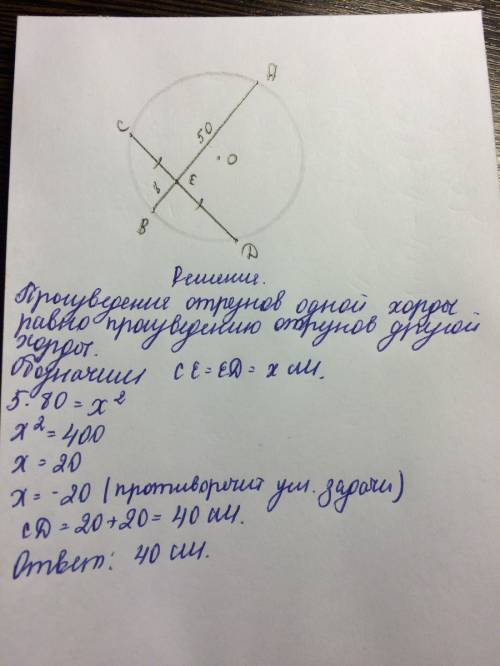 A
C
50
O
E
8
B
D
Решение.
Произведение отрезков одной хорды
равно произведению отрезков другой
хорды.
Обозначим CE = ED = x см.
5·80 = x²
x² = 400
x = 20
x = -20 (противоречит усл. задачи)
CD = 20 + 20 = 40 см.
Ответ: 40 см.